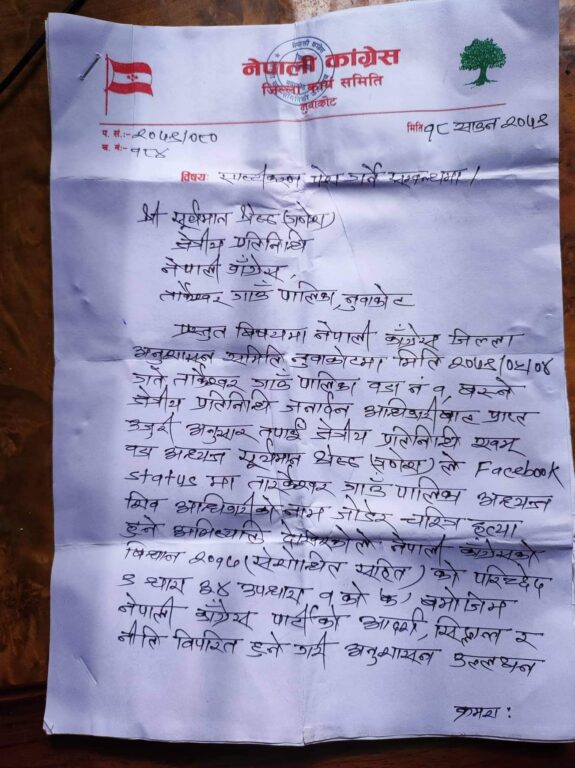 नेपाली कांग्रेस
जिल्ला कार्य समिति
नुवाकोट
प. सं:- २०७९/०८०
च. नं:- १९४
मिति १८ साउन २०७९
विषय: स्पष्टीकरण पेश गर्ने सम्बन्धमा।
श्री सूर्यमान श्रेष्ठ (गणेश)
क्षेत्रीय प्रतिनिधि
नेपाली काँग्रेस,
तार्केश्वर गाउँ पालिका, नुवाकोट
प्रस्तुत विषयमा नेपाली काँग्रेस जिल्ला
अनुशासन समिति नुवाकोटमा मिति २०७९/०४/०४
गते तार्केश्वर गाउँ पालिका वडा नं १ बस्ने
क्षेत्रीय प्रतिनिधि जनार्दन अधिकारीबाट प्राप्त
उजुरी अनुसार तपाईं क्षेत्रीय प्रतिनिधि एवम्
वडा अध्यक्ष सूर्यमान श्रेष्ठ (गणेश) ले Facebook
status मा तारकेश्वर गाउँ पालिका अध्यक्ष
शिव अधिकारीको नाम जोडेर चरित्र हत्या
हुने अभिव्यक्ति नेपाली काँग्रेसको
विधान २०१७ (संशोधित सहित) को परिच्छेद
८ धारा ४४ उपधारा १ को क, बमोजिम
नेपाली काँग्रेस पार्टीको आदर्श, सिद्धान्त र
नीति विपरित हुने गरी अनुशासन उल्लंघन
क्रमश: